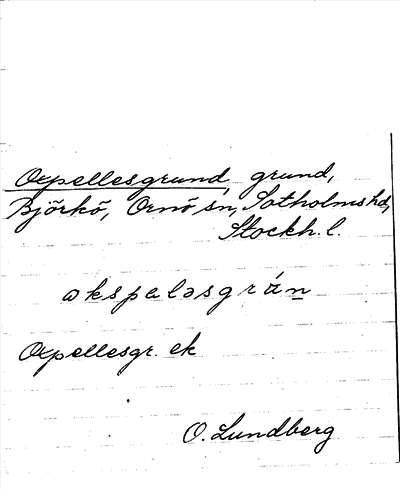 Oxpellesgrund, grund,
Björkö, Ornö sn, Sotholms hd,
Stockh. l.
økspaləsgrán
Oxpellesgr. ek
O. Lundberg